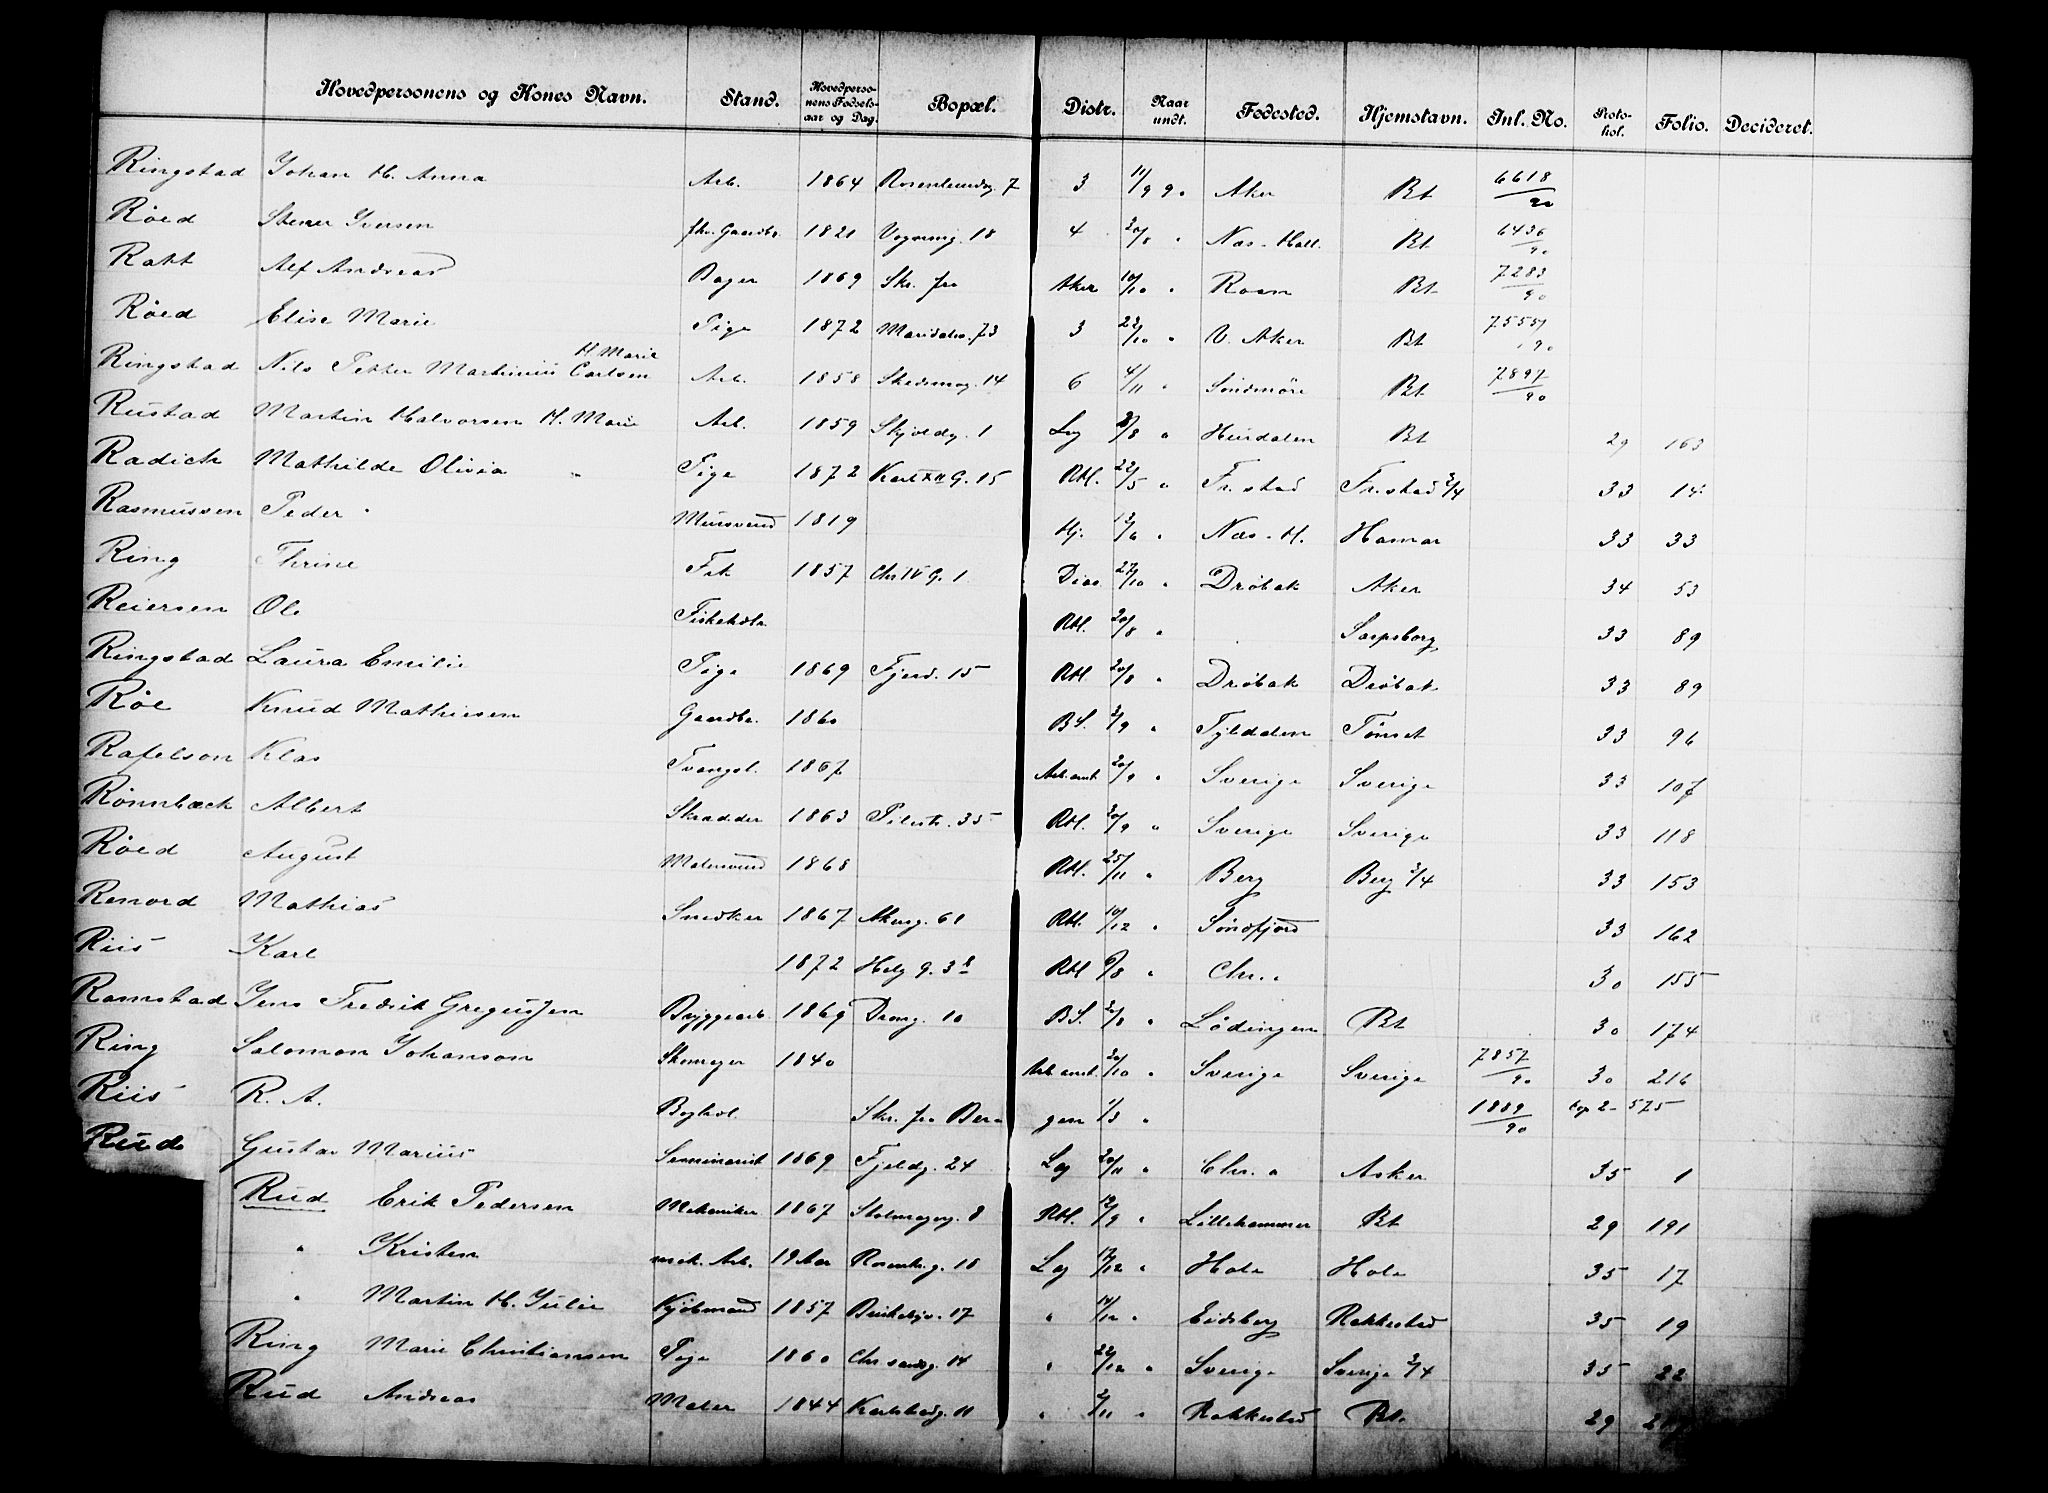 Hovedpersonens og Kones Navn. Stand. Hovedpersonens Fødselsaar og Dag. Bopæl. Distr. Naar undt. Fødested. Hjemstavn. Inl. No. Protokol. Folio. Decideret.
Ringstad Johan H. Anna Arb. 1864 Rosenlundg. 7 3 11/9 90 Aker Bt 6618/90
Röed Stener Iversen fhv. Gaardbr. 1821 Vognmg. 18 4 20/8 " Næs-Hall. Bt 6436/90
Ratt Alf Andreas Bager 1869 Skr. fra Aker 10/10 " Roen Bt 7283/90
Röed Elise Marie Pige 1872 Maridalsv. 73 3 22/10 " V. Aker Bt 7555/90
Ringstad Nils Petter Martinius Carlsen H. Marie Arb. 1858 Skedsmog. 14 6 4/11 " Söndmöre Bt 7897/90
Rustad Martin Halvorsen H. Marie Arb. 1859 Skjoldg. 1 Lg /8 " Hurdalen Bt 29 163
Radich Mathilde Olivia Pige 1872 Karl XII G. 15 Rbl. 22/5 " Fr.stad Fr.stad 3/4 33 14
Rasmussen Peder Mursvend 1819 Hj. 13/6 " Næs-H. Hamar 33 33
Ring Thrine Frk 1857 Chr IV G. 1 Dias. 27/10 " Dröbak Aker 34 53
Reiersen Ole Fiskehdlr. Rbl. 20/8 " Sarpsborg 33 89
Ringstad Laura Emilie Pige 1869 Fjerd. 15 Rbl 20/8 " Dröbak Dröbak 33 89
Röe Knud Mathiesen Gaardbr. 1860 BS. 2/9 " Tyldalen Tönset 33 96
Rafelson Klas Tvangsl. 1867 Arb.anst. 20/9 " Sverige Sverige 33 107
Rönnbæck Albert Skrædder 1863 Pilestr. 35 Rbl. 30/9 " Sverige Sverige 33 118
Röed August Malersvend 1868 Rbl. 25/11 " Berg Berg 3/4 33 153
Renord Mathias Snedker 1867 Akersg. 61 Rbl. 10/12 " Söndfjord 33 162
Riis Karl 1872 Helg G. 3 Rbl /8 " Chr.a 30 155
Ramstad Jens Fredrik Gregussen Bryggearb. 1869 Dramg. 10 BS. /8 " Lödingen Bt 30 174
Ring Salomon Johanson Skomager 1840 Arb anst. 20/10 " Sverige Sverige 7857/90 30 216
Riis R. A. Boghol. Skr. fra Bergen 1/3 " 1889/90 Cop 2 - 575
Rud Gustav Marius Seminarist 1869 Fjeldg. 24 Lg 20/11 " Chr.a Asker 35 1
Rud Erik Pedersen Mekaniker 1867 Stolmagerg. 8 Rbl. 12/9 " Lillehammer Bt 29 191
" Kristen mek. Arb. 19 Aar Rosenkr.g. 18 Lg 12/12 " Hole Hole 35 17
" Martin H. Julie Kjöbmand 1857 Birkelgv. 17 " 14/12 " Eidsberg Rakkestad 35 19
Ring Marie Christiansen Pige 1860 Chr.sandsg. 14 " 22/12 " Sverige Sverige 3/4 35 22
Rud Andreas Maler 1844 Karlstadg. 11 " 2/11 " Rakkestad Bt. 29